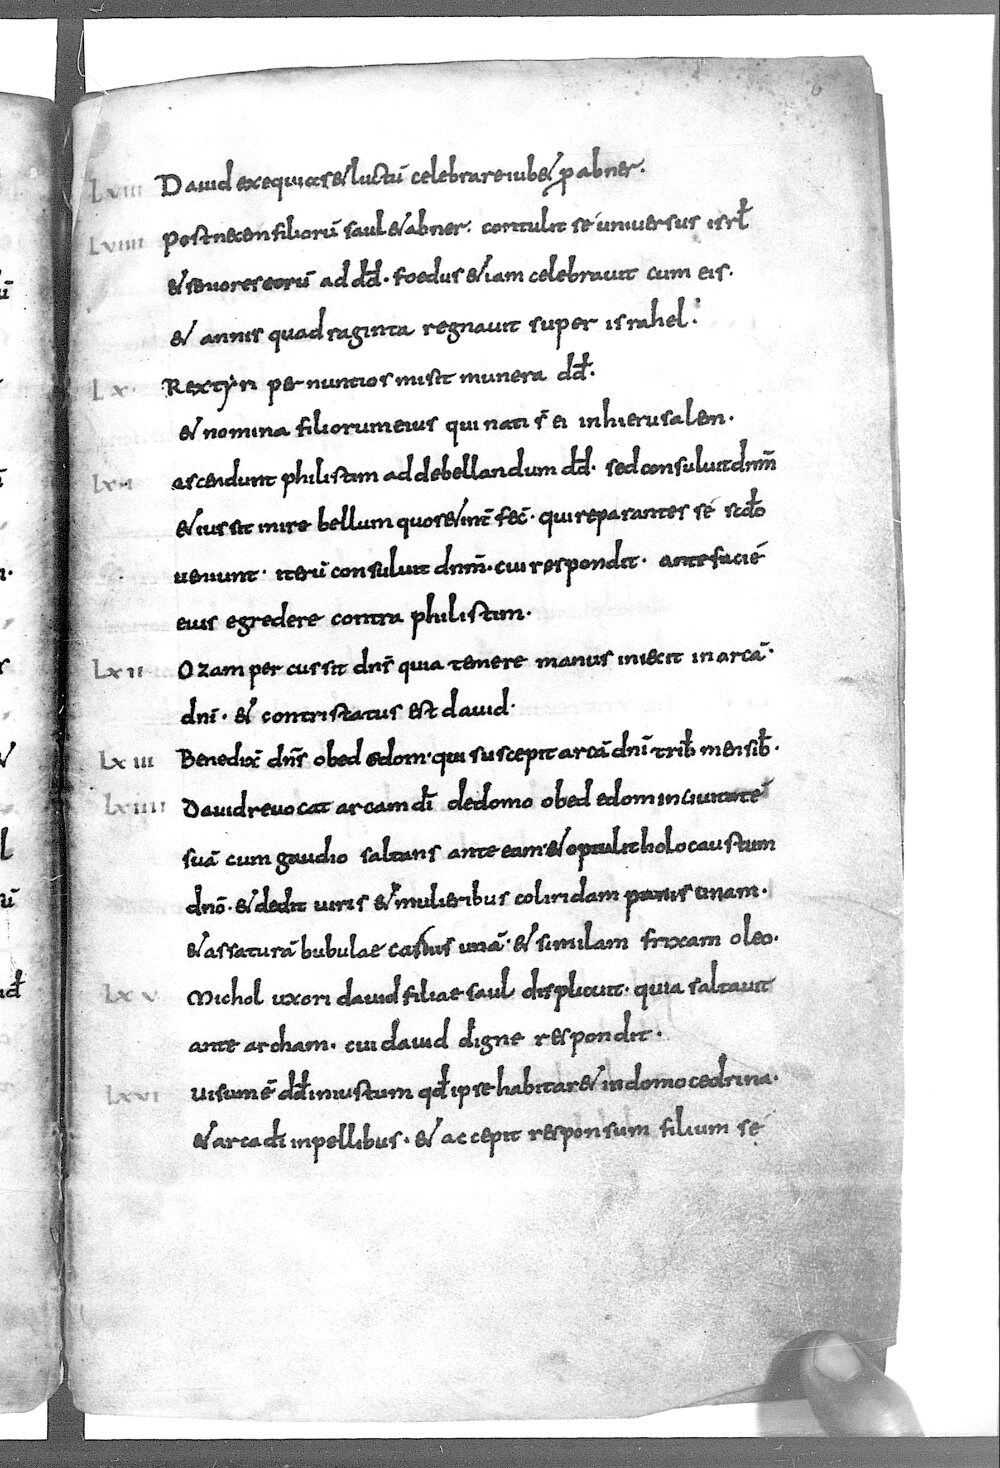 6
Lviii Dauid exequias & luctū celebrare iub& ꝓ abner.
Lviiii Post necem filiorū saul & abner. contulit sé uniuersus isrł
& seniores eorū ad dd̄. foedus & iam celebrauit cum eis.
& annis quadraginta regnauit super israhel.
Lx. Rex tyri per nuntios misit munera dd̄.
& nomina filiorum eius qui nati s̄ ei in hierusalem.
Lxi ascendunt philistim ad debellandum dd̄. sed consuluit dnm̄
& iussit inire bellum quos & int̄ fec̄. qui reparantes sé scdo
ueniunt. iterū consuluit dnm̄. cui respondit. ante facié
eius egredere contra philistim.
Lxii Ozam percussit dns̄ quia temere manus iniecit in arcā
dnī. & contristatus est dauid.
Lxiii Benedix̄ dns̄ obed edom. qui suscepit arcā dnī trib. mensib.
Lxiiii Dauid reuocat arcam dī de domo obed edom in ciuitatē
suā cum gaudio saltans ante eam & optulit holocaustum
dnō. & dedit uiris & mulieribus coliridam panis unam.
& assaturā bubulae carnis unā. & similam frixam oleo.
Lxv Michol uxori dauid filiae saul displicuit. quia saltauit
ante archam. cui dauid digne respondit.
Lxvi Uisum ē dd̄ iniustum qd̄ ipse habitar& in domo cedrina.
& arca dī in pellibus. & accepit responsum filium sé